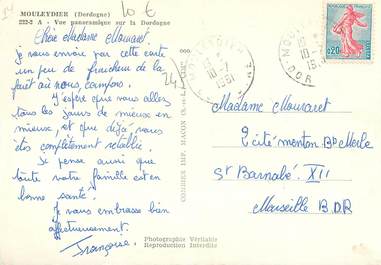 MOULEYDIER (Dordogne)
222-2 A - Vue panoramique sur la Dordogne
10 €
24
Chère Madame Mouraret
je vous envoie par cette carte
un peu de fraicheur de la
forêt où nous campons.
J'espère que vous allez
tous les jours de mieux en
mieux, et que déjà vous
êtes complètement rétablie.
Je pense aussi que
toute votre famille est en
bonne santé.
Je vous embrasse bien
affectueusement.
Françoise.
Photographie Véritable
Reproduction Interdite
COURIER IMP. MACON
10-7
1961
10-7
DOR
0,20
Madame Mouraret
2 cité menton Bd Merle
St Barnabé XII
Marseille B.D.R